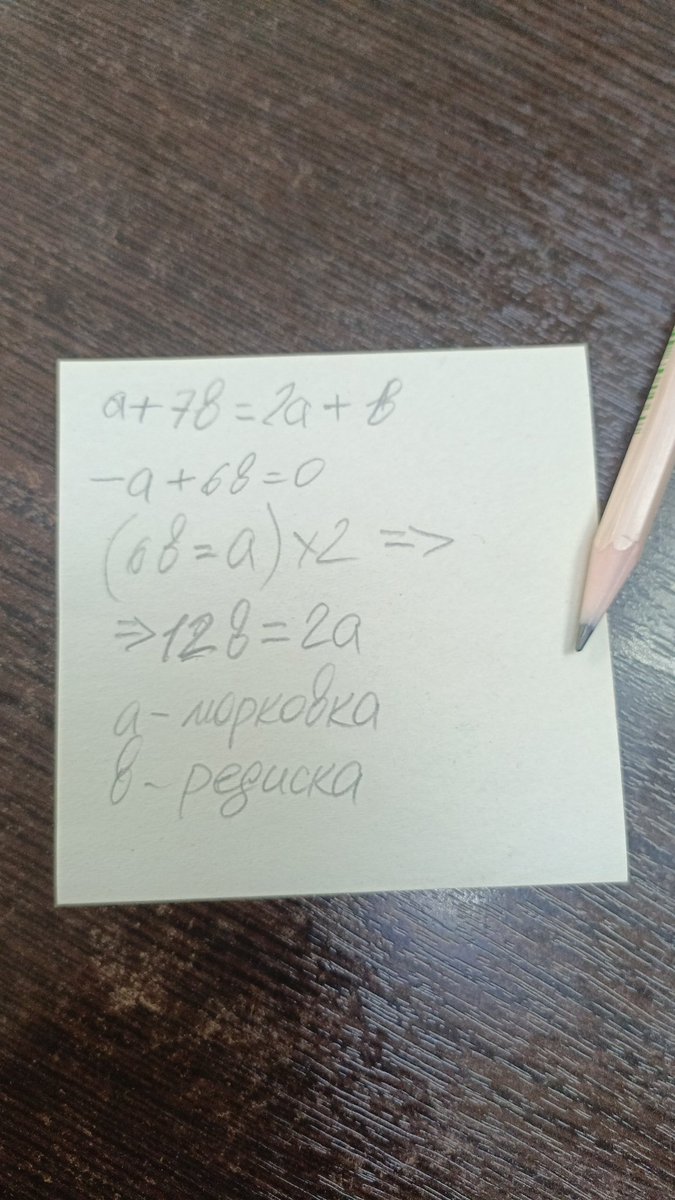 а + 7в = 2а + в
-а + 6в = 0
(6в = а) × 2 =>
=> 12в = 2а
а - морковка
в - редиска